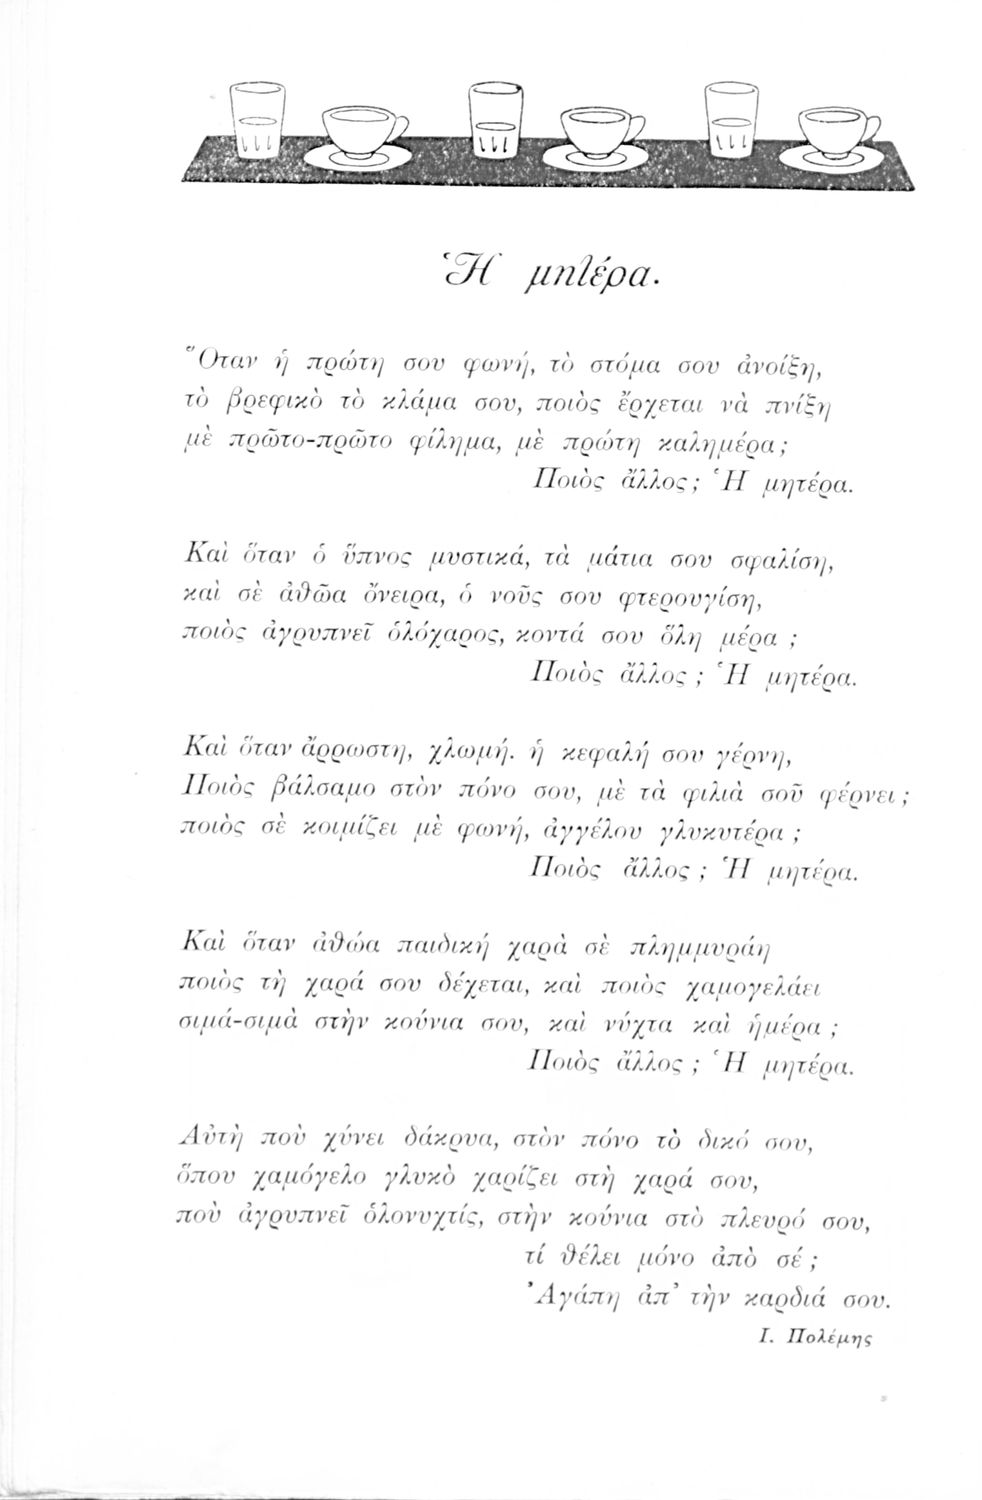 Ἡ μητέρα.
Ὅταν ἡ πρώτη σου φωνή, τὸ στόμα σου ἀνοίξη,
τὸ βρεφικὸ τὸ κλάμα σου, ποιὸς ἔρχεται νὰ πνίξη
μὲ πρῶτο-πρῶτο φίλημα, μὲ πρώτη καλημέρα;
Ποιὸς ἄλλος; Ἡ μητέρα.
Καὶ ὅταν ὁ ὕπνος μυστικά, τὰ μάτια σου σφαλίση,
καὶ σὲ ἀθῶα ὄνειρα, ὁ νοῦς σου φτερουγίση,
ποιὸς ἀγρυπνεῖ ὁλόχαρος, κοντά σου ὅλη μέρα ;
Ποιὸς ἄλλος ; Ἡ μητέρα.
Καὶ ὅταν ἄρρωστη, χλωμή. ἡ κεφαλή σου γέρνη,
Ποιὸς βάλσαμο στὸν πόνο σου, μὲ τὰ φιλιὰ σοῦ φέρνει ;
ποιὸς σὲ κοιμίζει μὲ φωνή, ἀγγέλου γλυκυτέρα ;
Ποιὸς ἄλλος ; Ἡ μητέρα.
Καὶ ὅταν ἀθώα παιδική χαρὰ σὲ πλημμυράη
ποιὸς τὴ χαρά σου δέχεται, καὶ ποιὸς χαμογελάει
σιμά-σιμὰ στὴν κούνια σου, καὶ νύχτα καὶ ἡμέρα ;
Ποιὸς ἄλλος ; Ἡ μητέρα.
Αὐτὴ ποὺ χύνει δάκρυα, στὸν πόνο τὸ δικό σου,
ὅπου χαμόγελο γλυκὸ χαρίζει στὴ χαρά σου,
ποὺ ἀγρυπνεῖ ὁλονυχτίς, στὴν κούνια στὸ πλευρό σου,
τί θέλει μόνο ἀπὸ σέ ;
Ἀγάπη ἀπ' τὴν καρδιά σου.
Ι. Πολέμης